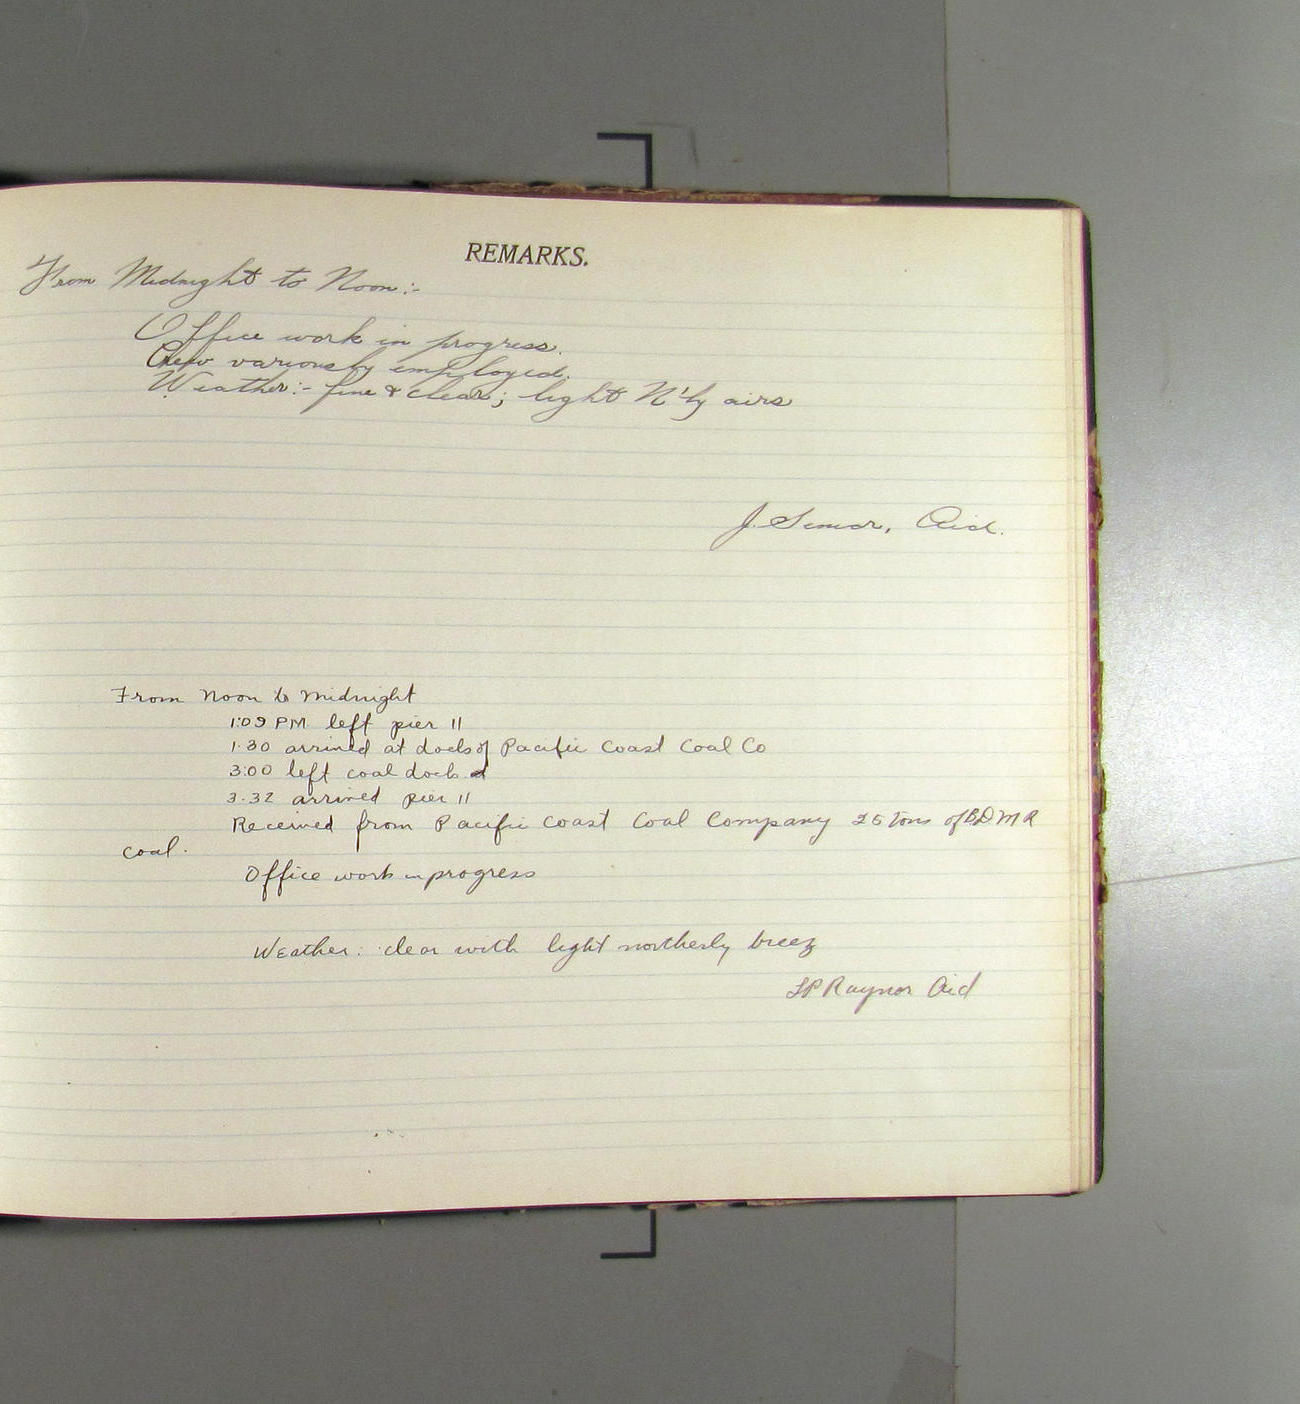 REMARKS.
From Midnight to Noon:-
Office work in progress.
Crew variously employed.
Weather:- fine & clear; light N'ly airs
J. Senior, Aid.
From Noon to Midnight
1:09 PM left pier 11
1.30 arrived at docks of Pacific Coast Coal Co
3:00 left coal dock
3.32 arrived pier 11
Received from Pacific Coast Coal Company 25 Tons of
coal.
Office work in progress
Weather: clear with light northerly breez
LP Raynor Aid